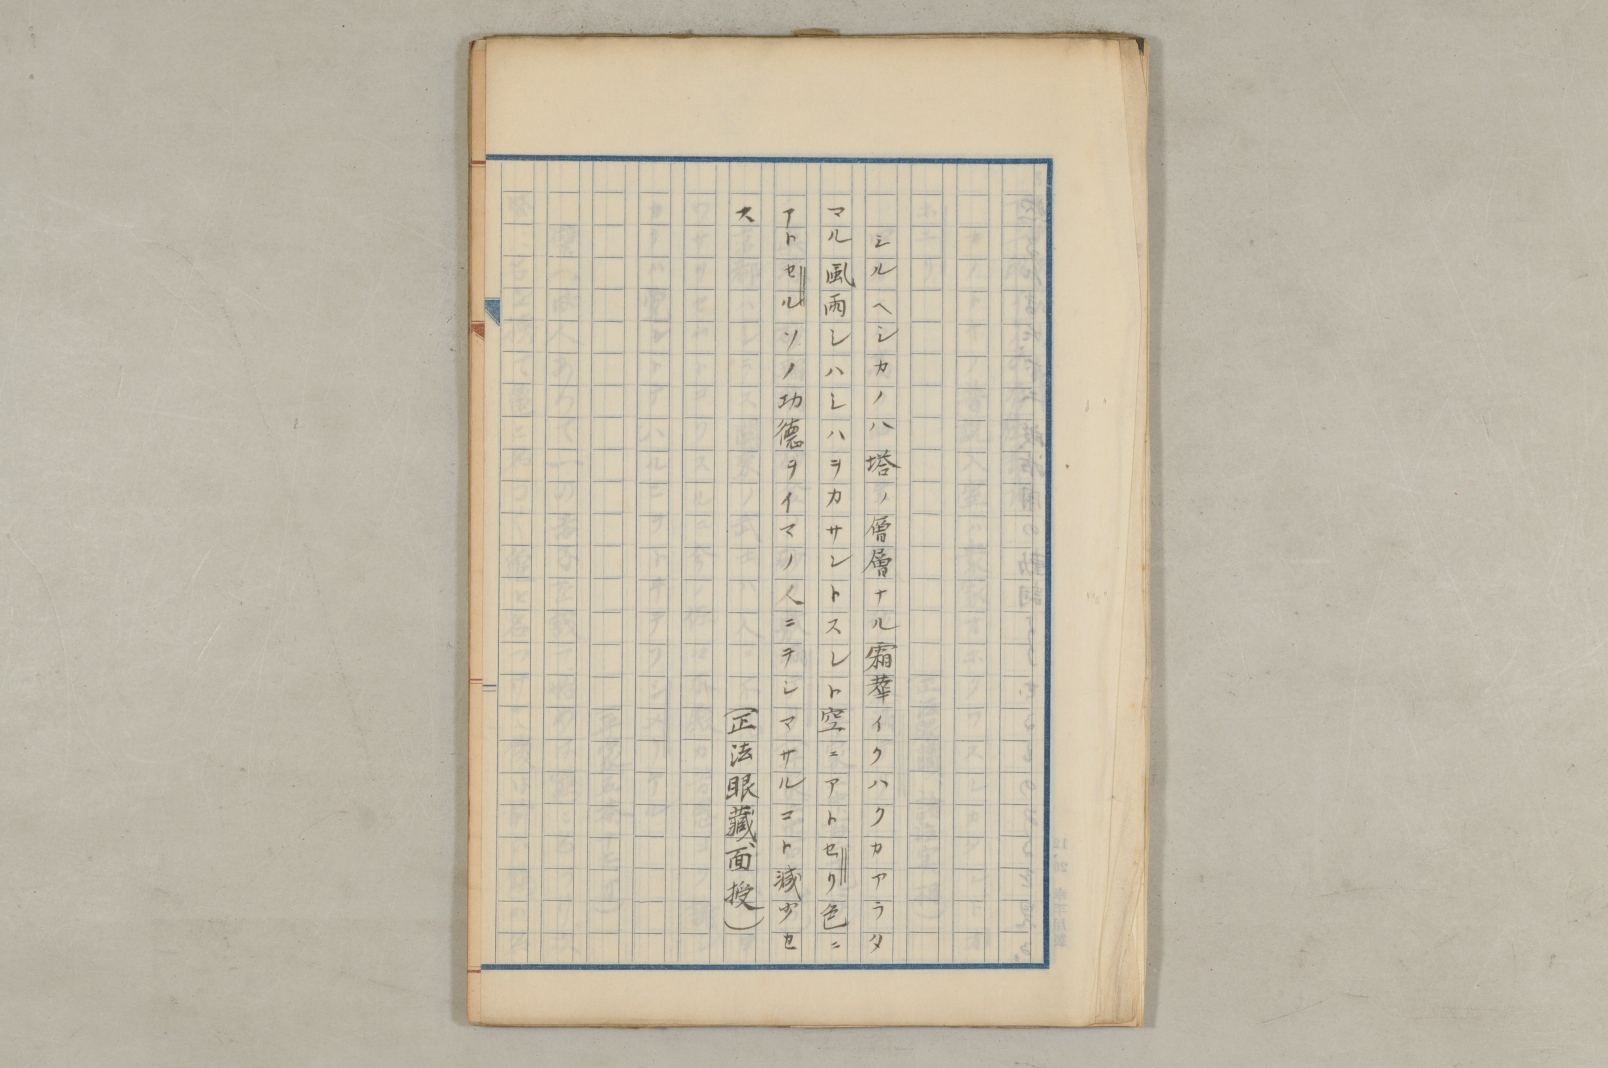 シルヘシカノハ塔ノ僧層ナル霜華イクハクカアラタ
マル風雨シハシハヲカサントスレト空ニアトセリ色ニ
アトセルソノ功徳ヲイマノ人ニヲシマサルコト減少セ
ス
（正法眼藏、面授）